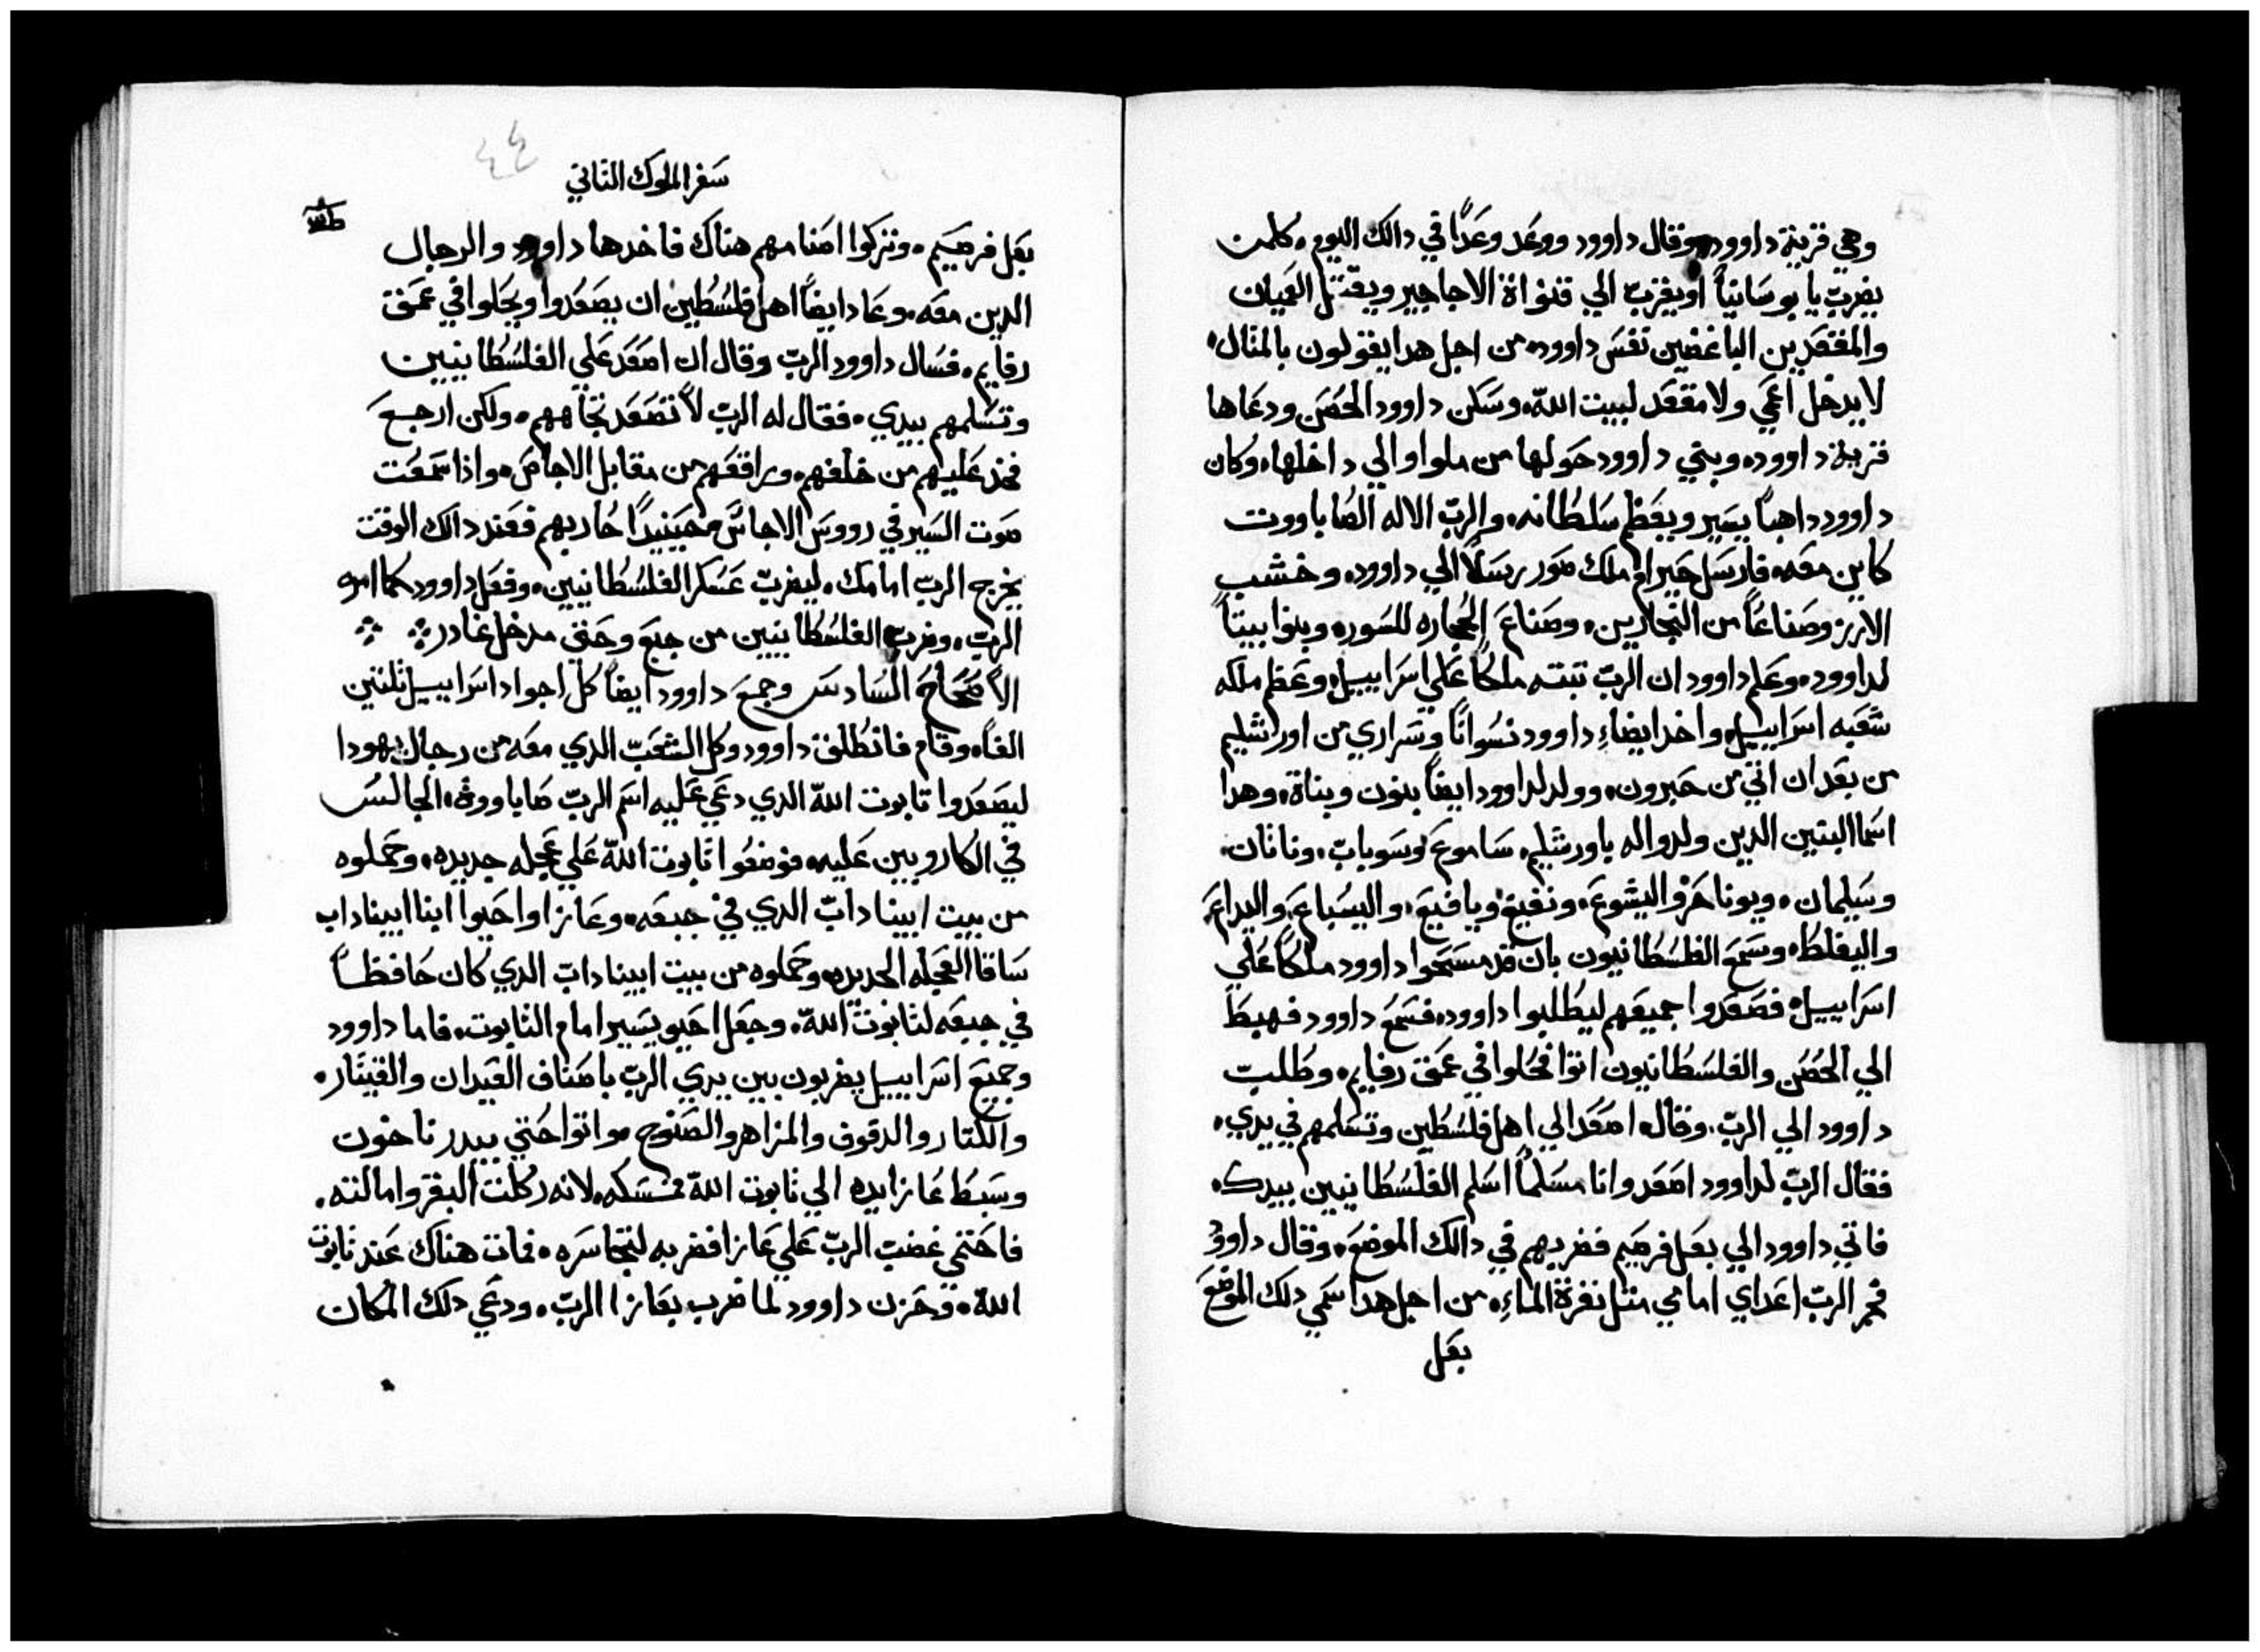 وهي قرية داوود وقال داوود ووعد وعدًا في دالك اليوم، كلمن
يضرب يا بوسانيًا او يقرب الي قنواة الاجاجير ويقتتل العميان
والمقعدين الباغضين نفس داوود، من اجل هدا يقولون بالمثال،
لا يدخل اعمي ولا مقعد لبيت اللّه، وسكن داوود الحصن ودعاها
قرية داوود، وبني داوود حولها من ملوا والي داخلها، وكان
داوود داهبًا يسير ويعظم سلطانه، والرب الاله الصاباووت
كاين معه، فارسل حيرام ملك صور رسلًا الي داوود، وخشب
الارز وصناعًا من النجارين، وصناع الحجاره للسور، وبنوا بيتًا
لداوود، وعلم داوود ان الرب تبته ملكًا علي اسراييل، وعظم ملكه
شعبه اسراييل، واخد ايضاء داوود نسوانًا وسراري من اورشليم
من بعد ان اتي من حبرون، وولد لداوود ايضًا بنون وبناة، وهدا
اسما البنين الدين ولدوا له باورشليم، ساموع وسوباب، وناتان،
وسليمان، ويوناحر واليشوع، ونفيغ ويافيع، واليسباع، واليداع،
واليفلط، وسمع الفلسطانيون بان قد مسحوا داوود ملكًا علي
اسراييل، فصعدوا جميعهم ليطلبوا داوود، فسمع داوود فهبط
الي الحصن والفلسطانيون اتوا فحلوا في عمق رفايم، وطلب
داوود الي الرب، وقال، اصعد الي اهل فلسطين وتسلمهم في يدي،
فقال الرب لداوود اصعد وانا مسلمًا اسلم الفلسطانيين بيدك،
فاتي داوود الي بعل فرصيم فضربهم في دالك الموضع، وقال داوود
فجر الرب اعداي امامي متل نفرة الماء، من اجل هدا سمي دلك الموضع
بعل
سفر الملوك التاني
٤٤
بعل فرصيم، وتركوا اصنامهم هناك فاخدها داوود والرجال
الدين معه، وعاد ايضًا اهل فلسطين ان يصعدوا ويحلوا في عمق
رفايم، فسال داوود الرب وقال ان اصعد علي الفلسطانيين
وتسلمهم بيدي، فقال له الرب لا تصعد تجاههم، ولكن ارجع
فخد عليهم من خلفهم، ورافقهم من مقابل الاجاص، وادا سمعت
صوت السير في رووس الاجاص حينيدًا حاربهم فعند دالك الوقت
يخرج الرب امامك، ليضرب عسكر الفلسطانيين، وفعل داوود كما امره
الرب، وضرب الفلسطانيين من جبع وحتي مدخل غادر
الاصحاح السادس وجمع داوود ايضًا كل اجواد اسراييل تلتين
الفًا، وقام فانطلق داوود وكل الشعب الدي معه من رجال يهودا
ليصعدوا تابوت اللّه الدي دعي عليه اسم الرب صاباووة، الجالس
في الكاروبين عليه، فوضعوا تابوت اللّه علي عجله جديده، وحملوه
من بيت ابيناداب الدي في جبعه، وعازا واحيوا ابنا ابيناداب
ساقا العجله الجديده، وحملوه من بيت ابيناداب الدي كان حافظًا
في جبعه لتابوت اللّه، وجعل احيو يسير امام التابوت، فاما داوود
وجميع اسراييل يضربون بين يدي الرب باصناف العيدان والقيتار،
والكتار والدفوف والمزاهر والصنوج، واتوا حتي بيدر ناخون
وسبط عازا يده الي تابوت اللّه مسكه، لانه ركلت البقر وامالته،
فاحتني غضب الرب علي عازا فضربه لتجاسره، فمات هناك عند تابوت
اللّه، وحزن داوود لما ضرب بعازا الرب، ودعي دلك المكان